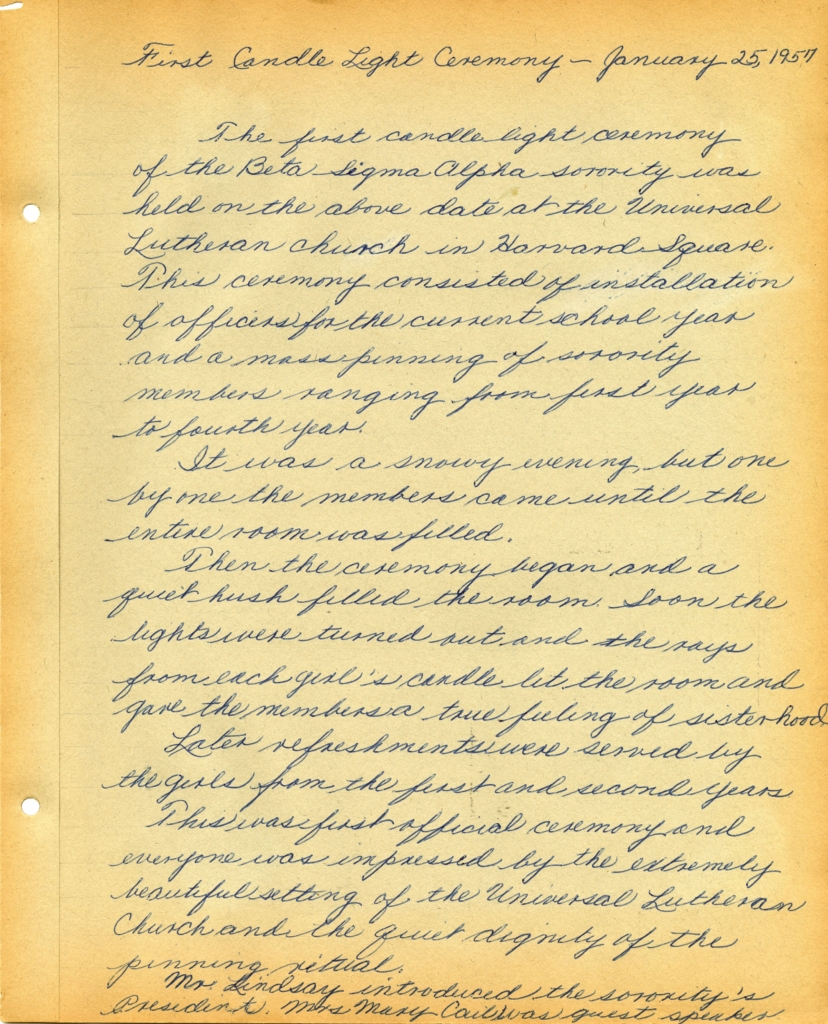 First Candle Light Ceremony – January 25, 1957
The first candle light ceremony
of the Beta Sigma Alpha sorority was
held on the above date at the Universal
Lutheran church in Harvard Square.
This ceremony consisted of installation
of officers for the current school year
and a mass pinning of sorority
members ranging from first year
to fourth year.
It was a snowy evening, but one
by one the members came until the
entire room was filled.
Then the ceremony began and a
quiet hush filled the room. Soon the
lights were turned out and the rays
from each girl's candle lit the room and
gave the members a true feeling of sisterhood
Later refreshments were served by
the girls from the first and second years
This was first official ceremony and
everyone was impressed by the extremely
beautiful setting of the Universal Lutheran
Church and the quiet dignity of the
pinning ritual.
Mr. Lindsay introduced the sorority's
President. Mrs Mary was guest speaker.